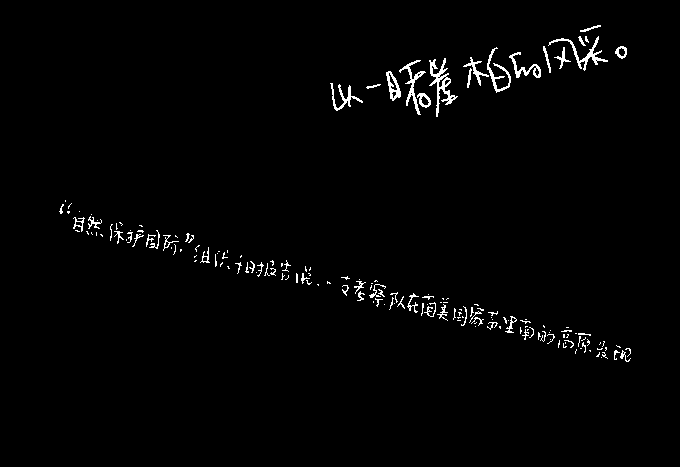 以一睹崖柏的风采。
“自然保护国际”组织4日报告说,一支考察队在南美国家苏里南的高原发现